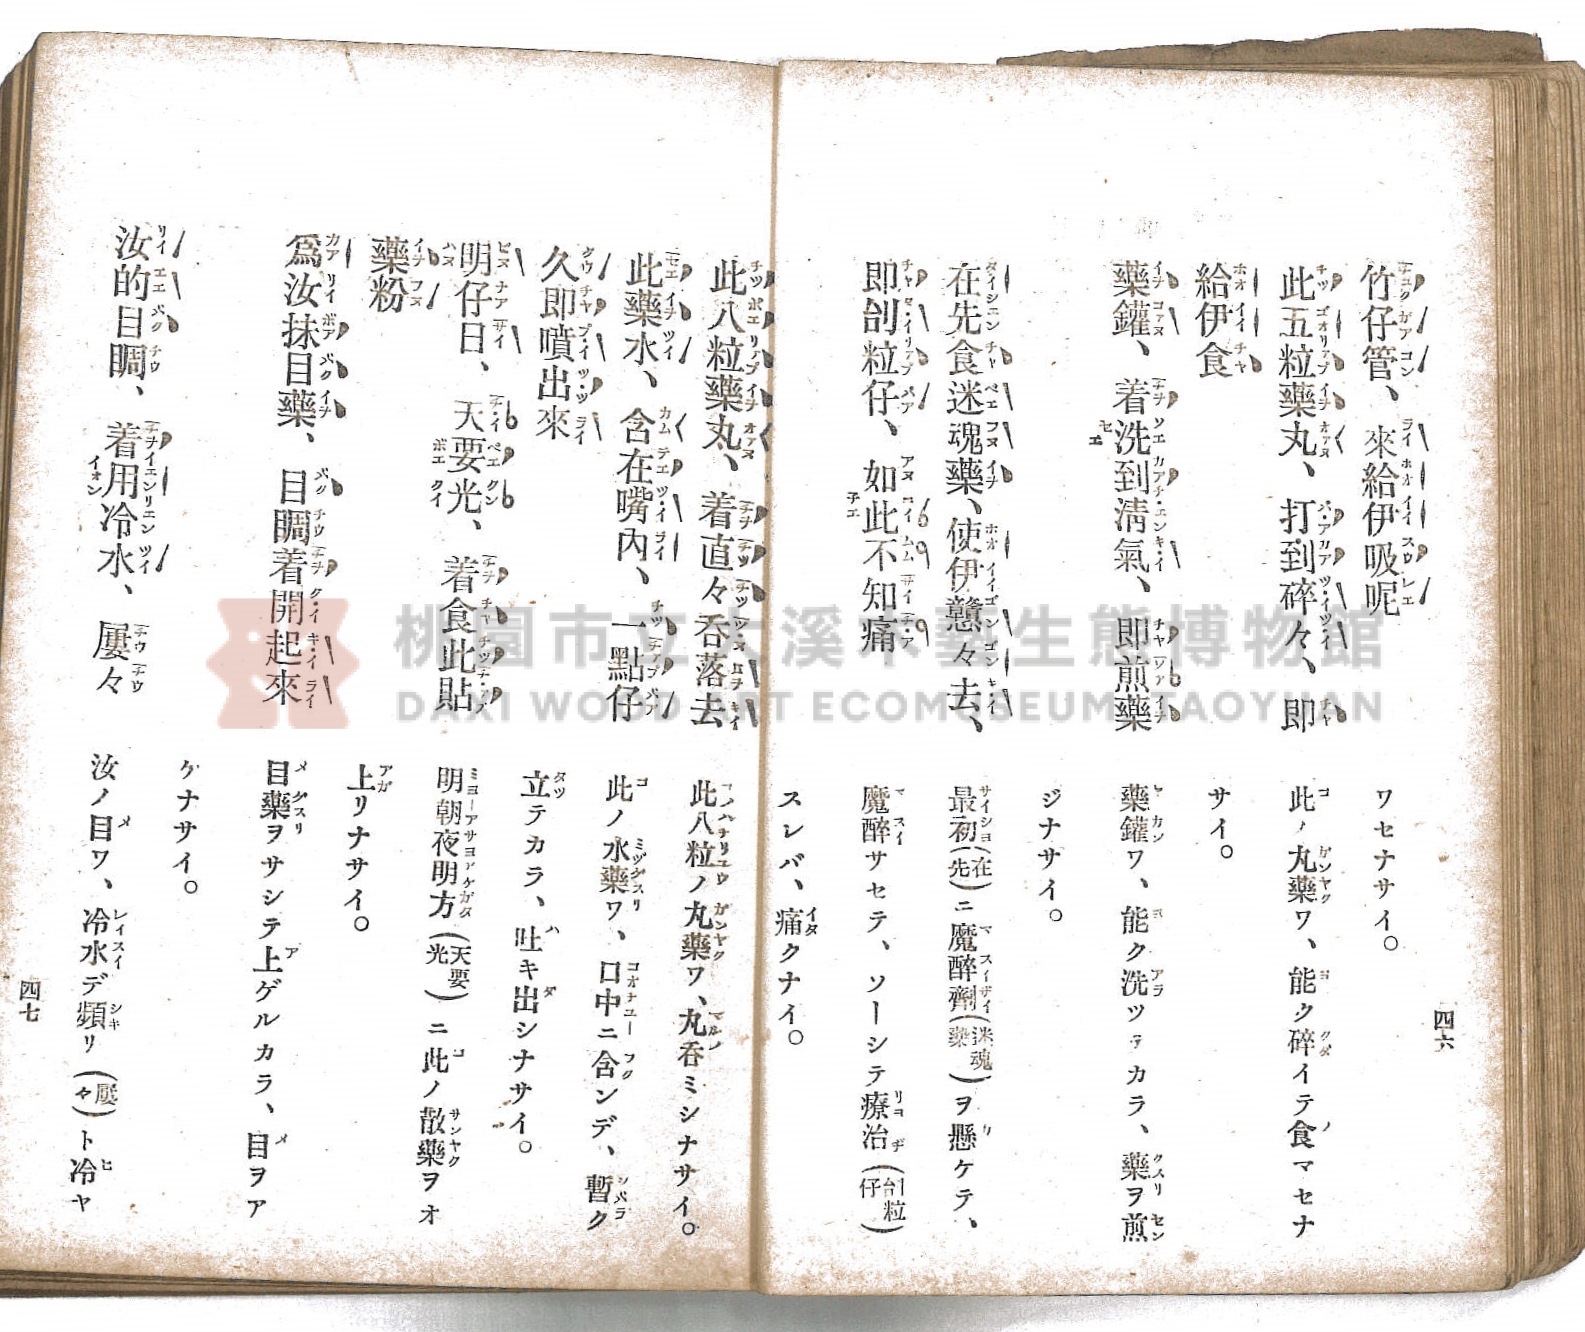 四六
竹仔管、來給伊吸呢
ワセナサイ。
此五粒藥丸、打到碎々、即
此ノ丸藥ワ、能ク碎イテ食マセナ
給伊食
サイ。
藥鑵、着洗到淸氣、即煎藥
藥鑵ワ、能ク洗ツテカラ、藥ヲ煎
ジナサイ。
在先食迷魂藥、使伊戇々去、
最初(在先)ニ魔醉劑(迷魂藥)ヲ懸ケテ、
即刣粒仔、如此不知痛
魔醉サセテ、ソーシテ療治(刣粒仔)
スレバ、痛クナイ。
此八粒藥丸、着直々吞落去
此八粒ノ丸藥ワ、丸吞ミシナサイ。
此藥水、含在嘴內、一點仔
此ノ水藥ワ、口中ニ含ンデ、暫ク
久即噴出來
立テカラ、吐キ出シナサイ。
明仔日、天要光、着食此貼
明朝夜明方(天要光)ニ此ノ散藥ヲオ
藥粉
上リナサイ。
爲汝抹目藥、目睭着開起來
目藥ヲサシテ上ゲルカラ、目ヲア
ケナサイ。
汝的目睭、着用冷水、屢々
汝ノ目ワ、冷水デ頻リ(屢々)ト冷ヤ
四七
桃園市立大溪木藝生態博物館
DAXI WOOD ART ECOMUSEUM TAOYUAN